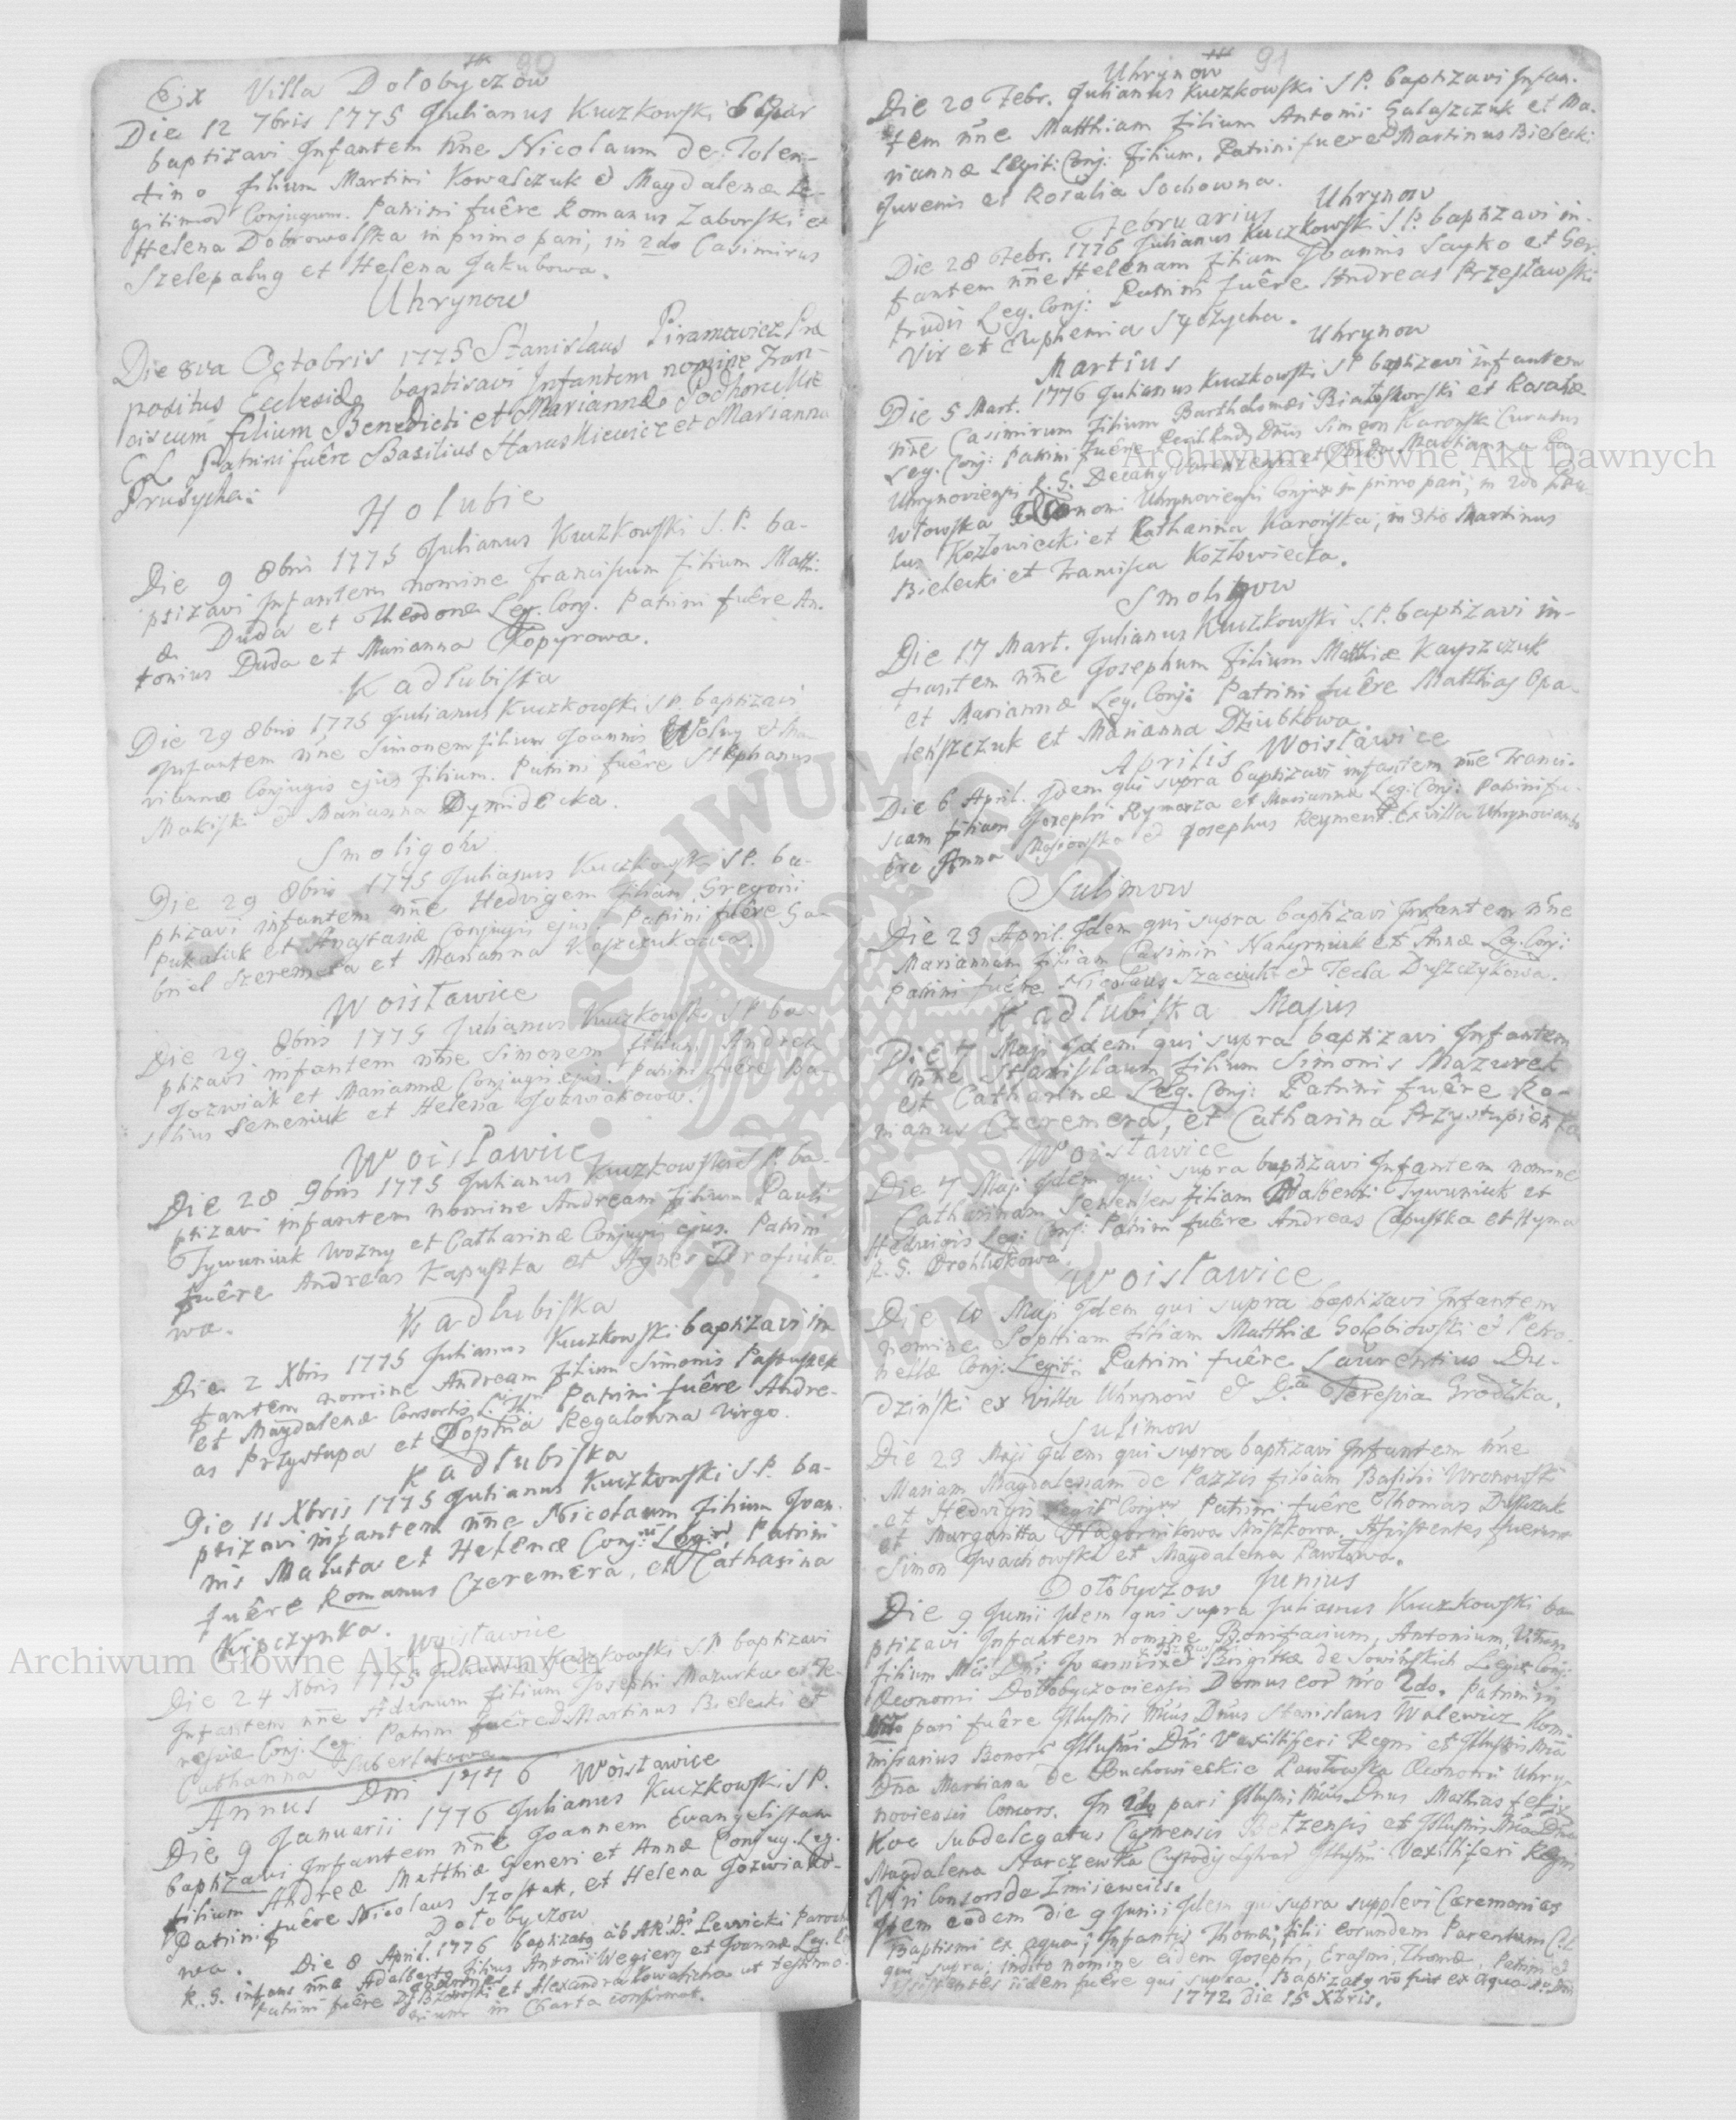 90
Ex Villa Dołobyczow
Die 12 7bris 1775 Julianus Kuczkowski
baptizavi Infantem nñe Nicolaum de Tolen-
tino filium Martini Kowalczuk et Magdalenæ Le-
gitimor Conjugum. Patrini fuêre Romanus Zaborski et
Helena Dobrowolska in primo pari, in 2do Casimirus
Szelepaług et Helena Jakubowa.
Uhrynow
Die 8va Octobris 1775 Stanislaus Piramowicz Præ
positus Ecclesiæ baptisavi Infantem nomine Fran-
ciscum filium Benedicti et Mariannæ Podhoreckie
CL Patrini fuêre Basilius Haraskiewicz et Marianna
Prusycha.
Holubie
Die 9 8bris 1775 Julianus Kuczkowski S.P. ba-
ptizavi Infantem nomine Franciscum filium Matthi-
æ Duda et Theodoræ Leg. Conj. Patrini fuêre An-
tonius Duda et Marianna Kopyrowa.
Kadłubiska
Die 29 8bris 1775 Julianus Kuczkowski S.P. baptizavi
Infantem nñe Simonem filium Joannis Wolny et Ma-
riannæ Conjugis ejus filium. Patrini fuêre Stephanus
et Marianna Dymidecka.
Smoligow
Die 29 8bris 1775 Julianus Kuczkowski S.P. ba-
ptizavi infantem nñe Hedvigem filiam Gregorii
Pukaluk et Anastasiæ Conjugis ejus. Patrini fuêre Ga-
briel Szeremeta et Marianna Kaszczukowa.
Woisławice
Die 29 8bris 1775 Julianus Kuczkowski S.P. ba-
ptizavi infantem nñe Simonem filium Andreæ
Jozwiak et Mariannæ Conjugis ejus. Patrini fuêre Ba-
silius Semeniuk et Helena Jozwiakowa.
Woisławice
Die 28 9bris 1775 Julianus Kuczkowski S.P. ba-
ptizavi infantem nomine Andream filium Pauli
Tywuniuk Wozny et Catharinæ Conjugis ejus. Patrini
fuêre Andreas Kapustka et Agnes Trofiuko
wa.
Kadłubiska
Die 2 Xbris 1775 Julianus Kuczkowski baptizavi in
fantem nomine Andream filium Simonis Pastuszek
et Magdalenæ Consortis Patrini fuêre Andre-
as Przystupa et Sophia Regalowna Virgo.
Kadłubiska
Die 11 Xbris 1775 Julianus Kuczkowski S.P. ba-
ptizavi infantem nñe Nicolaum filium Joan-
nis Maluta et Helenæ Conj: Leg: Patrini
fuêre Romanus Czeremera, et Catharina
Kipczynka.
Woisławice
Die 24 Xbris 1775 Julianus Kuczkowski S.P. baptizavi
Infantem nñe Adamum filium Josephi Mazurka et Te-
resiæ Conj. Leg. Patrini fuêre Martinus Bielecki et
Catharina
Annus Dni 1776 Woisławice
Die 9 Januarii 1776 Julianus Kuczkowski S.P.
baptizavi Infantem nñe Joannem Evangelistam
filium Andreæ Matthiæ Generi et Annæ Conjug. Leg.
Patrini fuêre Nicolaus Szostak, et Helena Jozwiako-
wa.
Dołobyczow
Die 8 April. 1776 baptizatg ab Lewicki Paroch
R.S. infans nñe Adalbertg filius Antonii Wegiera et Joannæ Leg. Conj
Patrini fuêre et Alexandra Kowalicha ut testimo-
nium in Charta confirmat.
91
Uhrynow
Die 20 Febr. Julianus Kuczkowski S.P. baptizavi Infan-
tem nñe Matthiam filium Antonii Galaszczuk et Ma-
riannæ Legit: Conj: filium. Patrini fuere Martinus Bielecki
Juvenis et Rosalia Sochowna.
Februarius Uhrynow
Die 28 Febr. 1776 Julianus Kuczkowski S.P. baptizavi in-
fantem nñe Helenam filiam Joannis Sayko et Ger-
trudis Leg. Conj: Patrini fuêre Andreas Przesławski
Vir et Euphemia Sydżycha.
Martius Uhrynow
Die 5 Mart. 1776 Julianus Kuczkowski S.P. baptizavi infantem
nñe Casimirum filium Bartholomæi Białoskorski et Rosaliæ
Leg. Conj: Patrini fuêre Dnus Simeon Karoński Curatus
Uhrynoviensis R.G. et Marianna Pa-
włowska Uhrynoviensis Conjux in primo pari; in 2do
lus Kozłowiecki et Catharina Karońska; in 3tio Martinus
Bielecki et Francisca Kozłowiecka.
Smoligow
Die 17 Mart. Julianus Kuczkowski S.P. baptizavi in-
fantem nñe Josephum filium Matthiæ Kayszczuk
et Mariannæ Leg. Conj: Patrini fuêre Matthias Opa-
leńszczuk et Marianna Dziubkowa.
Aprilis Woisławice
Die 6 April. Idem qui supra baptizavi infantem nñe Franci-
scam filiam Josephi Rymarza et Mariannæ Leg. Conj: Patrini fu-
êre Anna et Josephus Reyment. Ex villa Uhrynow ambo
Sulimow
Die 23 April. Idem qui supra baptizavi Infantem nñe
Mariannam filiam Casimiri Nahyrniuk et Annæ Leg. Conj:
Patrini fuêre Nicolaus et Tecla Duszczykowa.
Kadłubiska Majus
Die 7 Maji Idem qui supra baptizavi Infantem
nñe Stanislaum filium Simonis Mazurek
et Catharinæ Leg. Conj: Patrini fuêre Ro-
manus Czeremera, et Catharina Przystupienka
Woisławice
Die 7 Maji Idem qui supra baptizavi Infantem nomine
Catharinam Senensem filiam Adalberti Tywuniuk et
Hedvigis Leg: Conj: Patrini fuêre Andreas Capustka et Hyma
R.G. Drohluskowa.
Woisławice
Die 10 Maji Idem qui supra baptizavi Infantem
nomine Sophiam filiam Matthiæ Gołębiowski et Petro-
nellæ Conj: Legit: Patrini fuêre Laurentius Du-
dziński ex villa Uhrynow et Teresia Grodzka.
Sulimow
Die 23 Maji Idem qui supra baptizavi Infantem nñe
Mariam Magdalenam de Pazzis filiam Basilii Wronowski
et Hedvigis Legit Conj Patrini fuêre Thomas Duszczuk
et Margaritta Hagornikowa Assistentes fuerunt
Simon Gwachowski et Magdalena Pawłowa.
Dołobyczow Junius
Die 9 Junii Idem qui supra Julianus Kuczkowski ba-
ptizavi Infantem nomine Bonifacium, Antonium, Vitum
filium Mci Dni Joannis et Brigittæ de Sowinskich Legit Conj:
Œconomi Dołobyczoviensis Domus eor nro 2do. Patrini in
1mo pari fuêre Illustris Mcus Dnus Stanislaus Walewicz Kom-
missarius Bonor Illustris Dni Vexilliferi Regni et Illustris Mca
Dna Marianna de Buchowieckie Pawłowska Œconomi Uhry-
noviensis Consors. In 2do pari Illustris Mcus Dnus Mathias Felix
Koc Subdelegatus Castrensis Bełzensis et Illustris Mca Dna
Magdalena Starczewska Custodis Sylvar Illustris Vexilliferi Regni
Viri Consors de Zmijewcis.
Item eodem die 9 Junii Idem qui supra supplevi Cæremonies
Baptismi ex aqua; Infantis Thomæ; filii eorundem Parentum C.L.
qui supra, indito nomine eidem Josephi, Erasmi, Thomæ. Patrini et
Assistentes iidem fuêre qui supra. Baptizatg vo fuit ex aqua Ao Dni
1772 die 15 Xbris.
Archiwum Główne Akt Dawnych
Archiwum Główne Akt Dawnych
ARCHIWUM GŁÓWNE AKT DAWNYCH